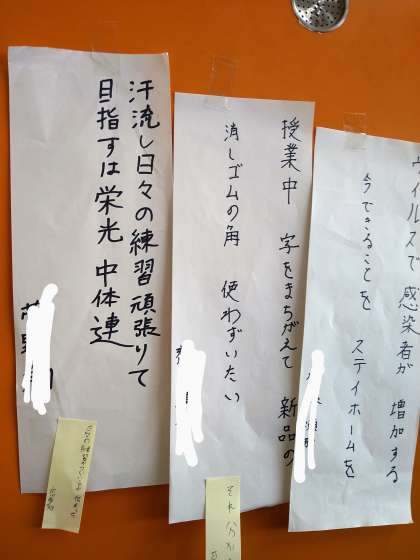 汗流し日々の練習頑張りて
目指すは栄光 中体連
授業中 字をまちがえて 新品の
消しゴムの角 使わずいたい
ウイルスで 感染者が 増加する
今できることを ステイホームを
それ分か